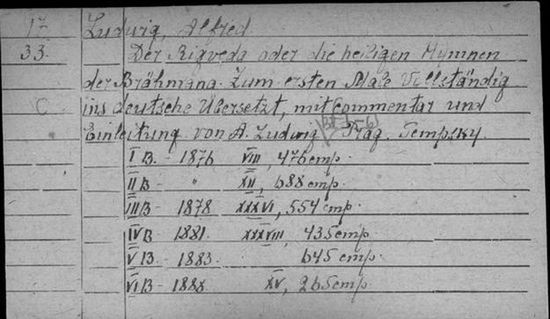 17 Ludwig, Alfred.
33. Der Rigveda oder die heiligen Hymnen
der Brâhmana. Zum ersten Male Vollständig
C ins deutsche Übersetzt, mit Commentar und
Einleitung von A. Ludwig Prag. Tempsky.
I B. - 1876 VIII, 476 стр.
II B - " XII, 688 стр.
III B - 1878 XXXVI, 554 стр.
IV B - 1881. XXXVIII, 435 стр.
V B. - 1883. 645 стр.
VI B - 1888 XV, 265 стр.